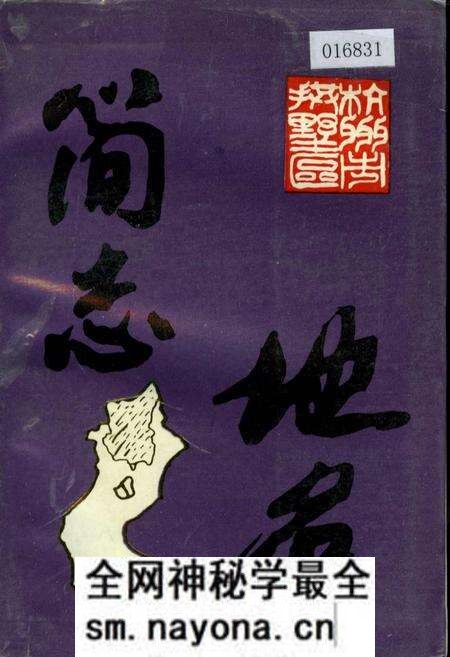 016831
杭州市
拱墅区
地名
简志
全网神秘学最全
sm.nayona.cn